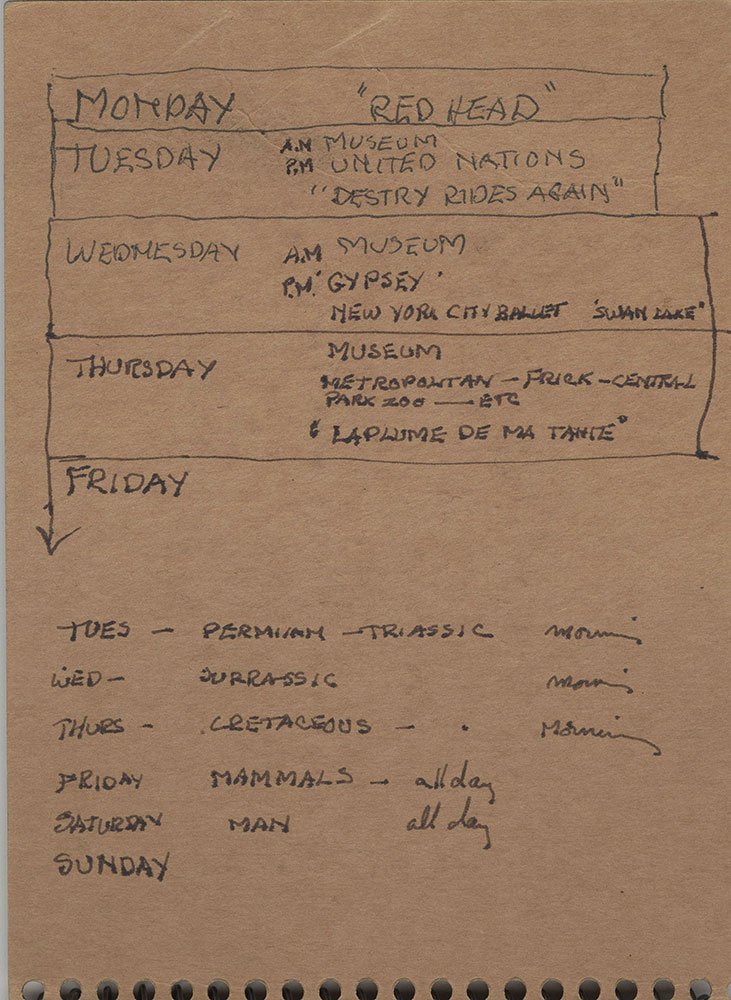 MONDAY "RED HEAD"
TUESDAY A.M MUSEUM
P.M UNITED NATIONS
"DESTRY RIDES AGAIN"
WEDNESDAY A.M MUSEUM
P.M. 'GYPSEY'
NEW YORK CITY BALLET 'SWAN LAKE"
THURSDAY MUSEUM
METROPOLITAN - FRICK - CENTRAL
PARK ZOO — ETC
"LAPLUME DE MA TANTE"
FRIDAY
TUES - PERMIIAN - TRIASSIC morning
WED - JURRASSIC morning
THURS - CRETACEOUS - Morning
FRIDAY MAMMALS - all day
SATURDAY MAN all day
SUNDAY